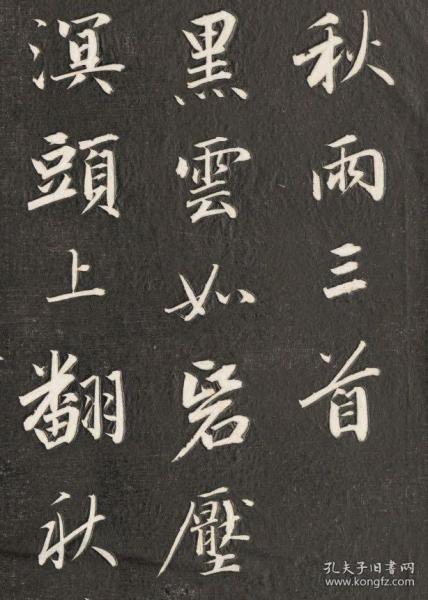 秋雨三首
黑雲如壓
溟頭上翻秋
孔夫子旧书网
www.kongfz.com